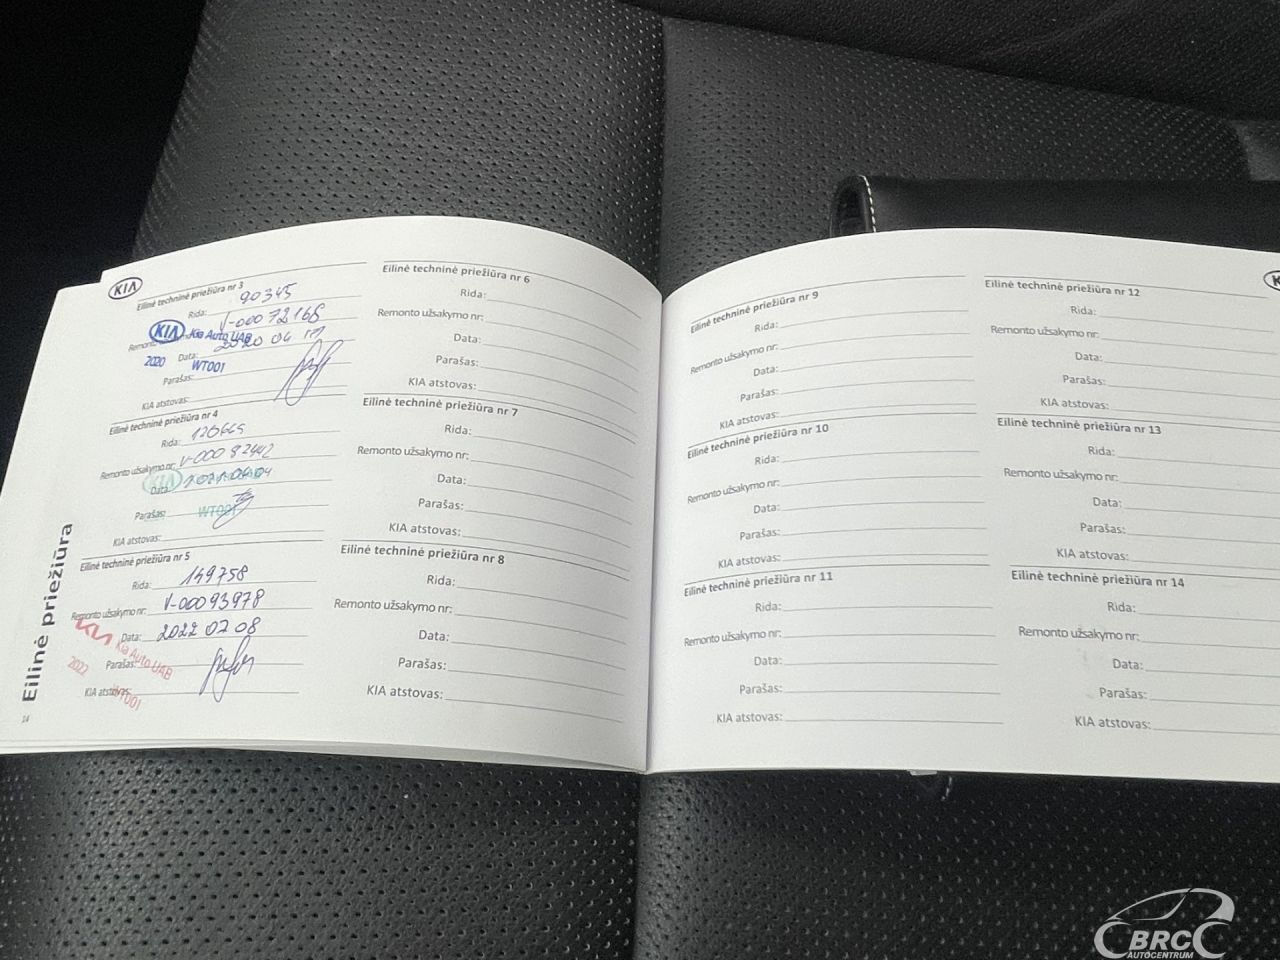 KIA
Eilinė techninė priežiūra nr 3
Rida: 90345
Remonto užsakymo nr: V-00072168
KIA Kia Auto UAB
Data: 2020 04
2020 WT001
Parašas:
KIA atstovas:
Eilinė techninė priežiūra nr 4
Rida:
Remonto užsakymo nr: V-00082442
KIA
Data: 2021 04 04
Parašas: WT001
KIA atstovas:
Eilinė techninė priežiūra nr 5
Rida: 149758
Remonto užsakymo nr: V-00093978
Data: 2022 07 08
KIA Kia Auto UAB
2022 WT001
Parašas:
KIA atstovas:
Eilinė priežiūra
14
Eilinė techninė priežiūra nr 6
Rida:
Remonto užsakymo nr:
Data:
Parašas:
KIA atstovas:
Eilinė techninė priežiūra nr 7
Rida:
Remonto užsakymo nr:
Data:
Parašas:
KIA atstovas:
Eilinė techninė priežiūra nr 8
Rida:
Remonto užsakymo nr:
Data:
Parašas:
KIA atstovas:
Eilinė techninė priežiūra nr 9
Rida:
Remonto užsakymo nr:
Data:
Parašas:
KIA atstovas:
Eilinė techninė priežiūra nr 10
Rida:
Remonto užsakymo nr:
Data:
Parašas:
KIA atstovas:
Eilinė techninė priežiūra nr 11
Rida:
Remonto užsakymo nr:
Data:
Parašas:
KIA atstovas:
Eilinė techninė priežiūra nr 12
Rida:
Remonto užsakymo nr:
Data:
Parašas:
KIA atstovas:
Eilinė techninė priežiūra nr 13
Rida:
Remonto užsakymo nr:
Data:
Parašas:
KIA atstovas:
Eilinė techninė priežiūra nr 14
Rida:
Remonto užsakymo nr:
Data:
Parašas:
KIA atstovas:
BRC
AUTOCENTRUM